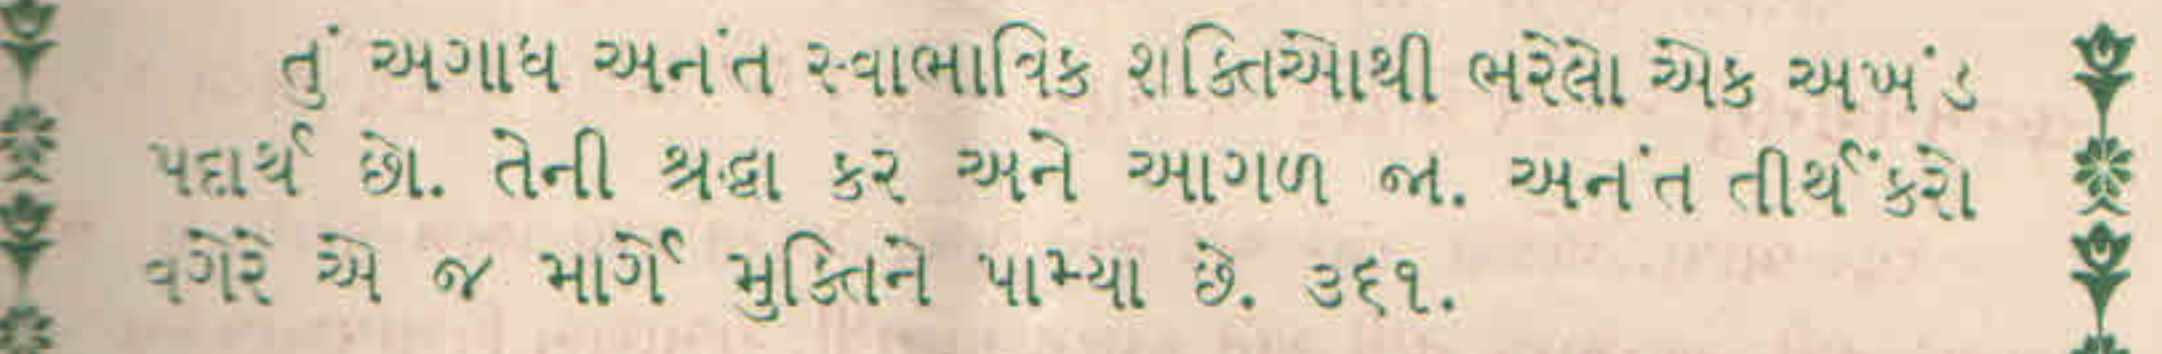 તું અગાધ અનંત સ્વાભાવિક શક્તિઓથી ભરેલો એક અખંડ
પદાર્થ છો. તેની શ્રદ્ધા કર અને આગળ જા. અનંત તીર્થંકરો
વગેરે એ જ માર્ગે મુક્તિને પામ્યા છે. ૩૬૧.